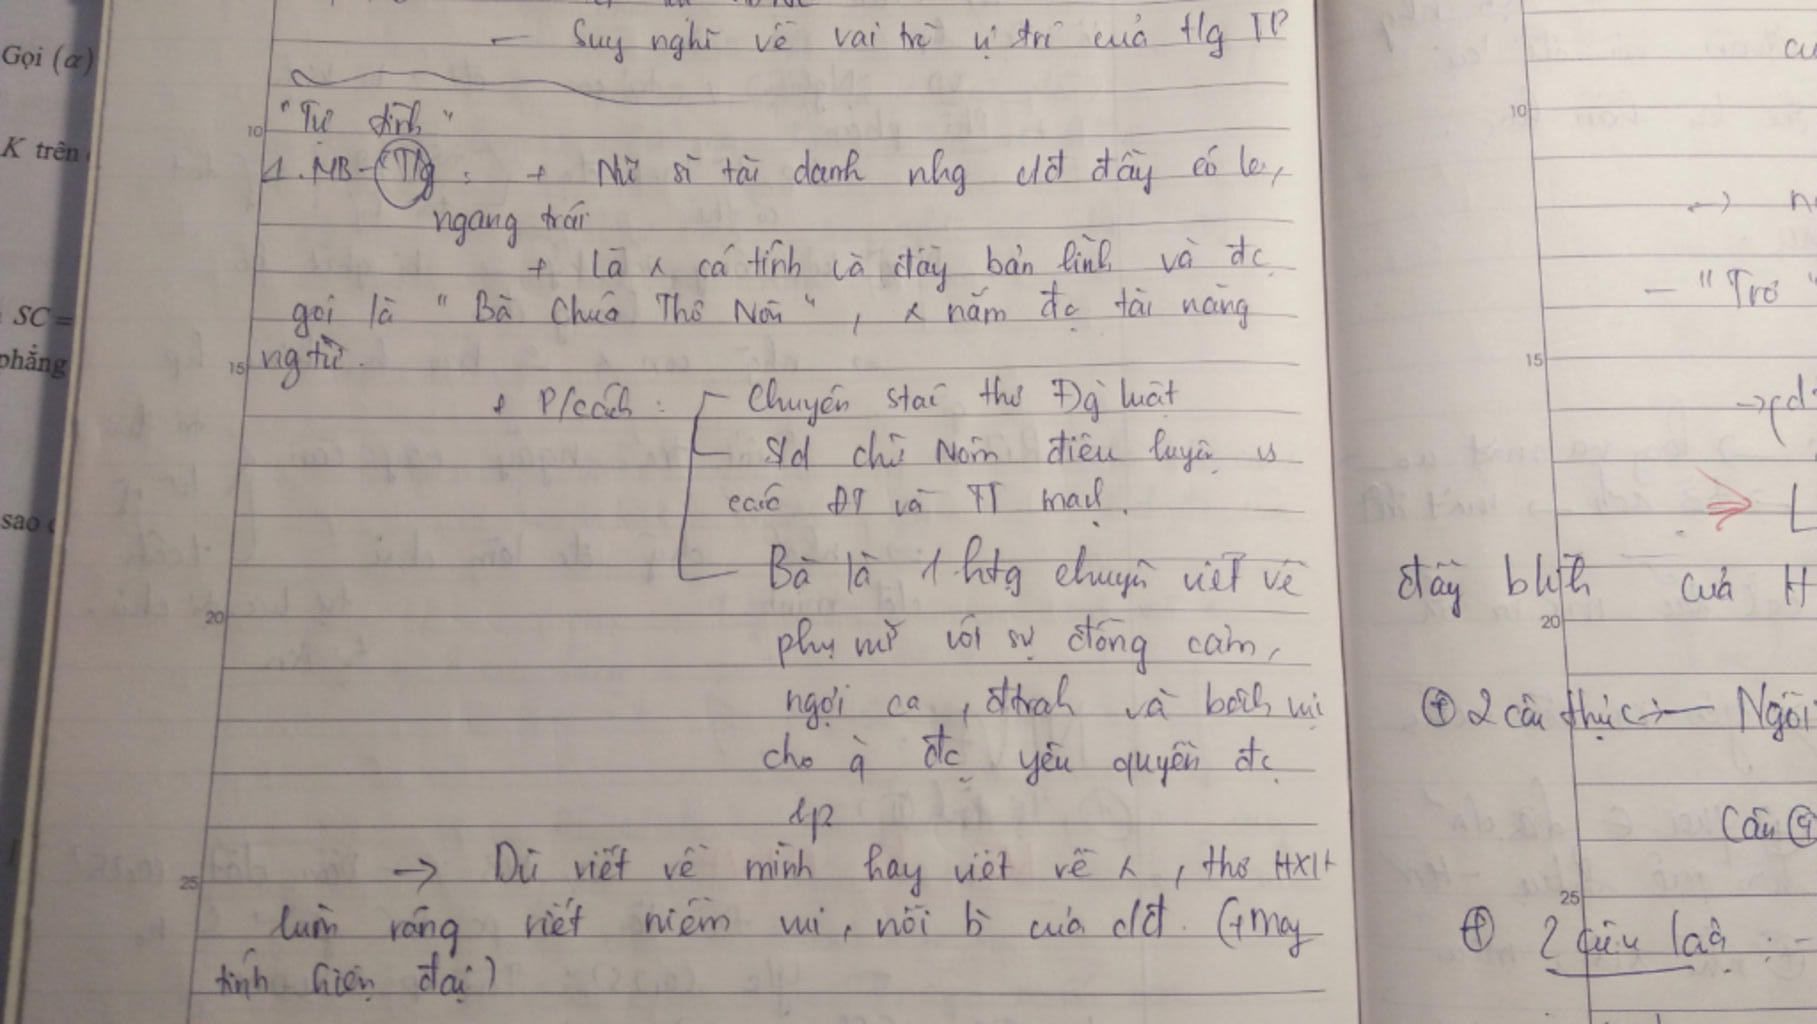 Gọi (α)
K trên
SC =
phẳng
sao
– Suy nghĩ về vai trò vị trí của tlg TP
"Tự tình"
1. MB - Tlg : + Nữ sĩ tài danh nhg clđ đầy éo le,
ngang trái
+ Là x cá tính và đầy bản lĩnh và đc
gọi là "Bà Chúa Thơ Nôm", x nắm đc tài năng
ng từ.
+ P/cách : – Chuyên stác thơ Đg luật
– Sd chữ Nôm điêu luyện
các ĐT và TT mạnh.
– Bà là 1 htg chuyên viết về
phụ nữ với sự đồng cảm,
ngợi ca, đtranh và bệnh vực
cho q đc yêu quyền đc
hp
→ Dù viết về mình hay viết về x, thơ HXH
luôn rắng viết niềm vui, nỗi b của clđ. (+ mag
tính hiện đại)
10
15
20
25
10
→
– "Trơ"
15
L
đầy blĩh của H
20
⊕ 2 câu thực → – Ngôi
Câu ④
25
⊕ 2 câu luậ : –